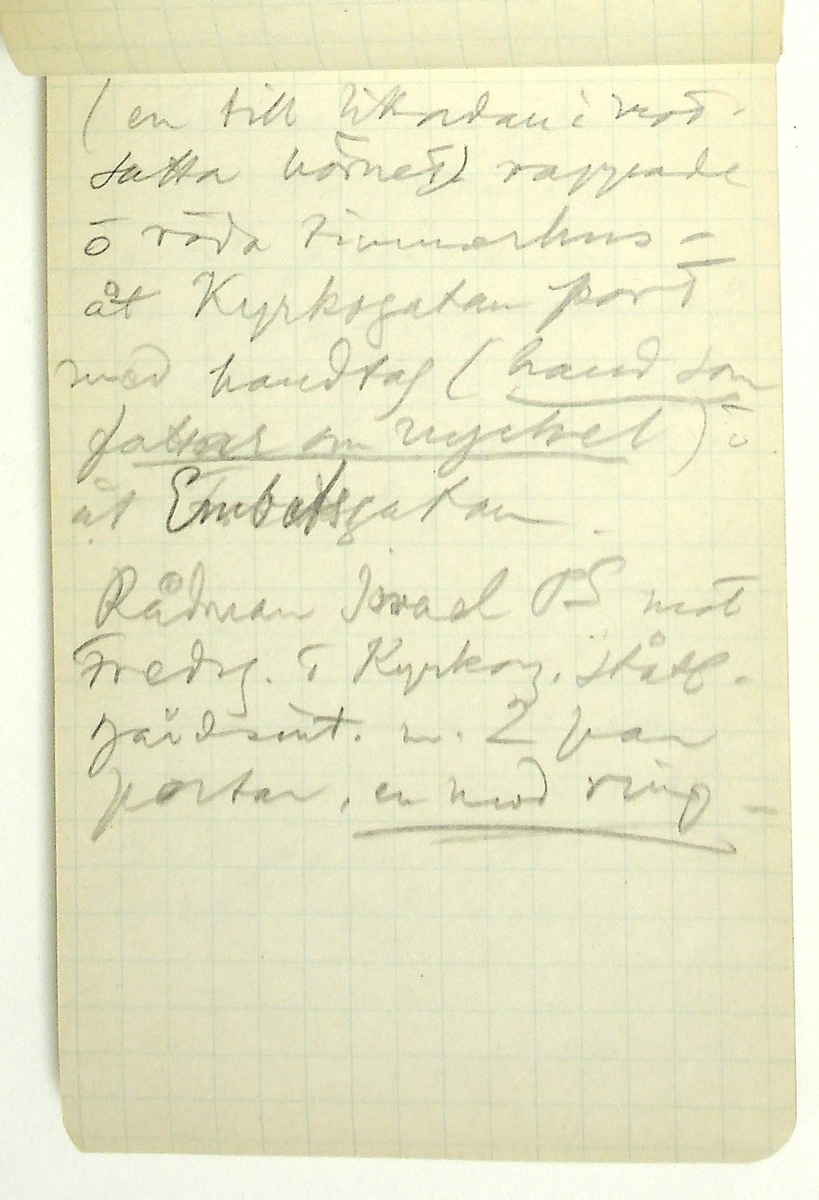 (en till likadan i mot-
satta hörnet) rappade
o röda timmerhus –
åt Kyrkogatan port
med handtag (hand som
fattar om nyckel) o
åt Embetsgatan.
Rådman Israel mot
Fredsg. Kyrkog. ståtl.
gårdsint. m. 2 par
portar, en med ring –